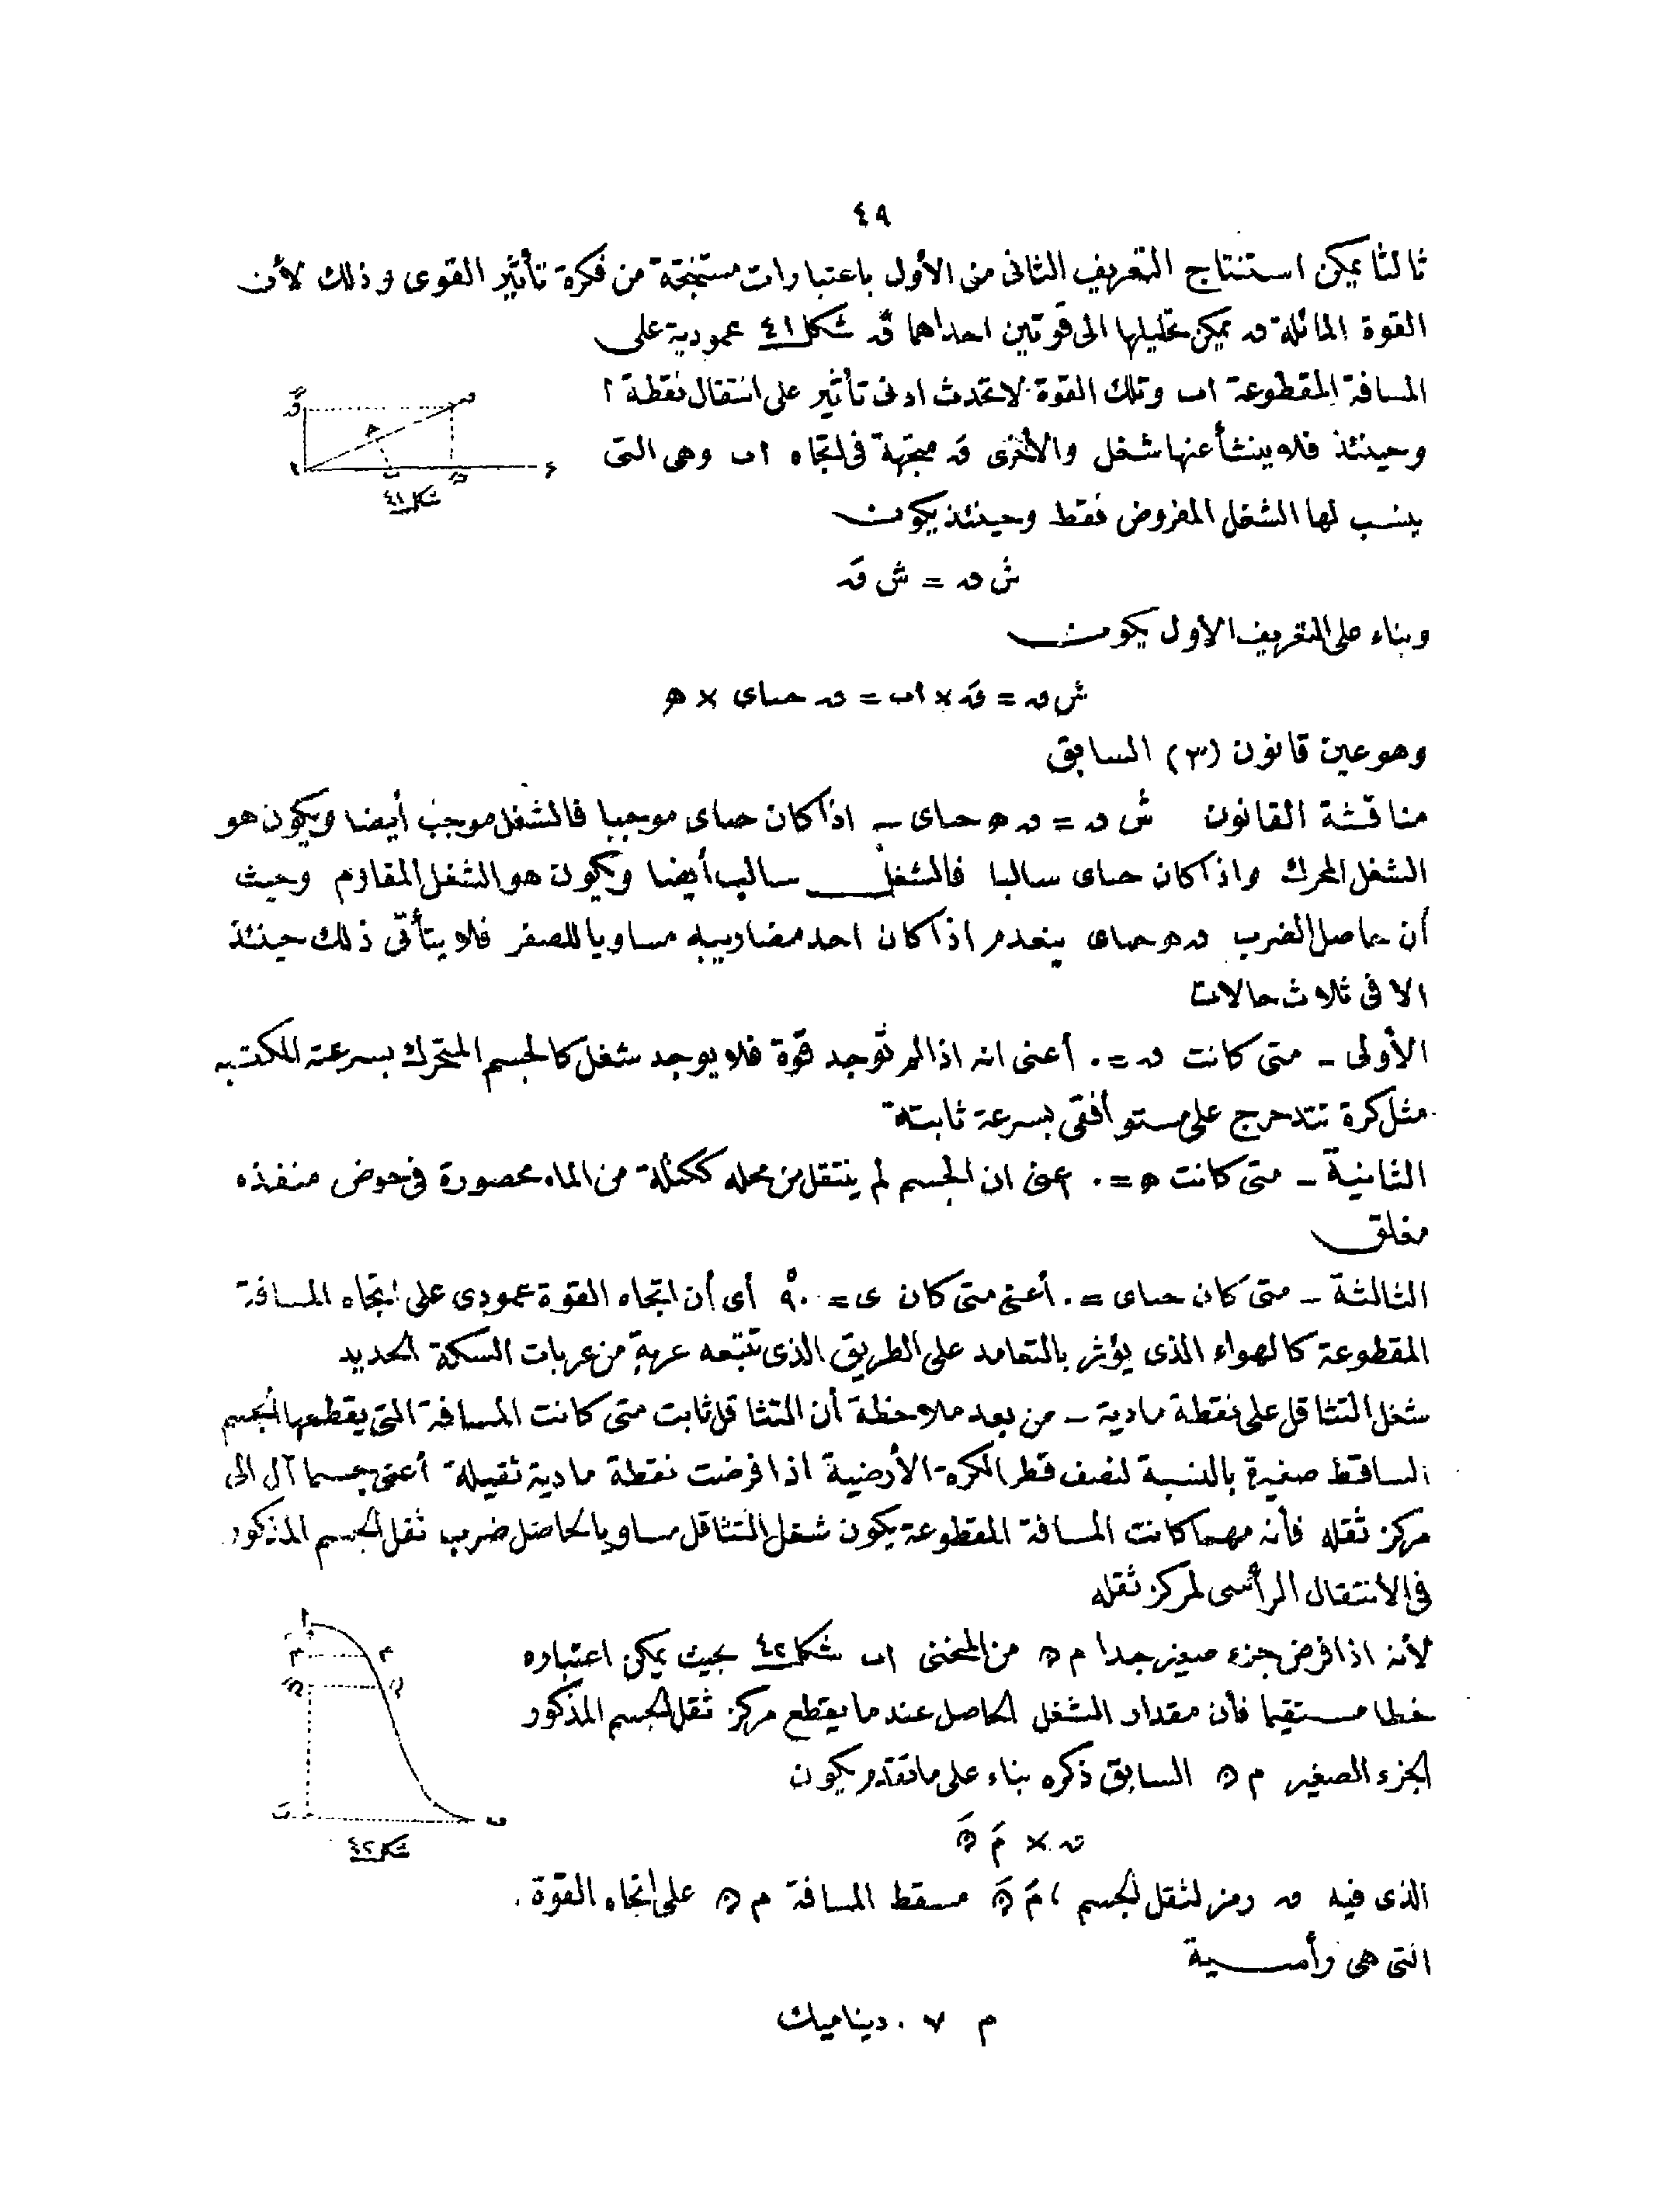 ٤٩
ثالثا يمكن استنتاج التعريف الثانى من الأول باعتبارات مستنتجة من فكرة تأثير القوى وذلك لأن
القوة المائلة ق يمكن تحليلها الى قوتين احداهما قً شكل ٤١ عمودية على
المسافة المقطوعة اب وتلك القوة لا تحدث ادنى تأثير على انتقال نقطة ا
وحينئذ فلا ينشأ عنها شغل والأخرى قَ متجهة فى اتجاه اب وهى التى
ينسب لها الشغل المفروض فقط وحينئذ يكون
شكل ٤١
ش ق = ش قَ
وبناء على التعريف الأول يكون
ش ق = قَ × اب = ق حتاى × ھ
وهو عين قانون (٣) السابق
مناقشة القانون ش ق = ق ھ حتاى - اذا كان حتاى موجبا فالشغل موجب أيضا ويكون هو
الشغل المحرك واذا كان حتاى سالبا فالشغل سالب أيضا ويكون هو الشغل المقاوم وحيث
أن حاصل الضرب ق ھ حتاى ينعدم اذا كان احد مضاريبه مساويا للصفر فلا يتأتى ذلك حينئذ
الا فى ثلاث حالات
الأولى - متى كانت ق = ٠ أعنى انه اذا لم توجد قوة فلا يوجد شغل كالجسم المتحرك بسرعته المكتسبه
مثل كرة تتدحرج على مستو أفقى بسرعة ثابتة
الثانية - متى كانت ھ = ٠ اعنى ان الجسم لم ينتقل من محله ككتلة من الماء محصورة فى حوض منفذه
مغلق
الثالثة - متى كان حتاى = ٠ أعنى متى كان ى = ٩٠° أى أن اتجاه القوة عمودى على اتجاه المسافة
المقطوعة كالهواء الذى يؤثر بالتعامد على الطريق الذى تتبعه عربة من عربات السكة الحديد
شغل التثاقل على نقطة مادية - من بعد ملاحظة أن التثاقل ثابت متى كانت المسافة التى يقطعها الجسم
الساقط صغيرة بالنسبة لنصف قطر الكرة الأرضية اذا فرضت نقطة مادية ثقيلة أعنى جسما آل الى
مركز ثقله فأنه مهما كانت المسافة المقطوعة يكون شغل التثاقل مساويا لحاصل ضرب ثقل الجسم المذكور
فى الأنتقال الرأسى لمركز ثقله
لأنه اذا فرض جزء صغير جدا م ن من المنحنى اب شكل ٤٢ بحيث يمكن اعتباره
خطا مستقيما فأن مقدار الشغل الحاصل عند ما يقطع مركز ثقل الجسم المذكور
الجزء الصغير م ن السابق ذكره بناء على ما تقدم يكون
شكل ٤٢
ق × مَ نَ
الذى فيه ق رمز لثقل الجسم ، مَ نَ مسقط المسافة م ن على اتجاه القوة
التى هى رأسية
م ٧ . ديناميك